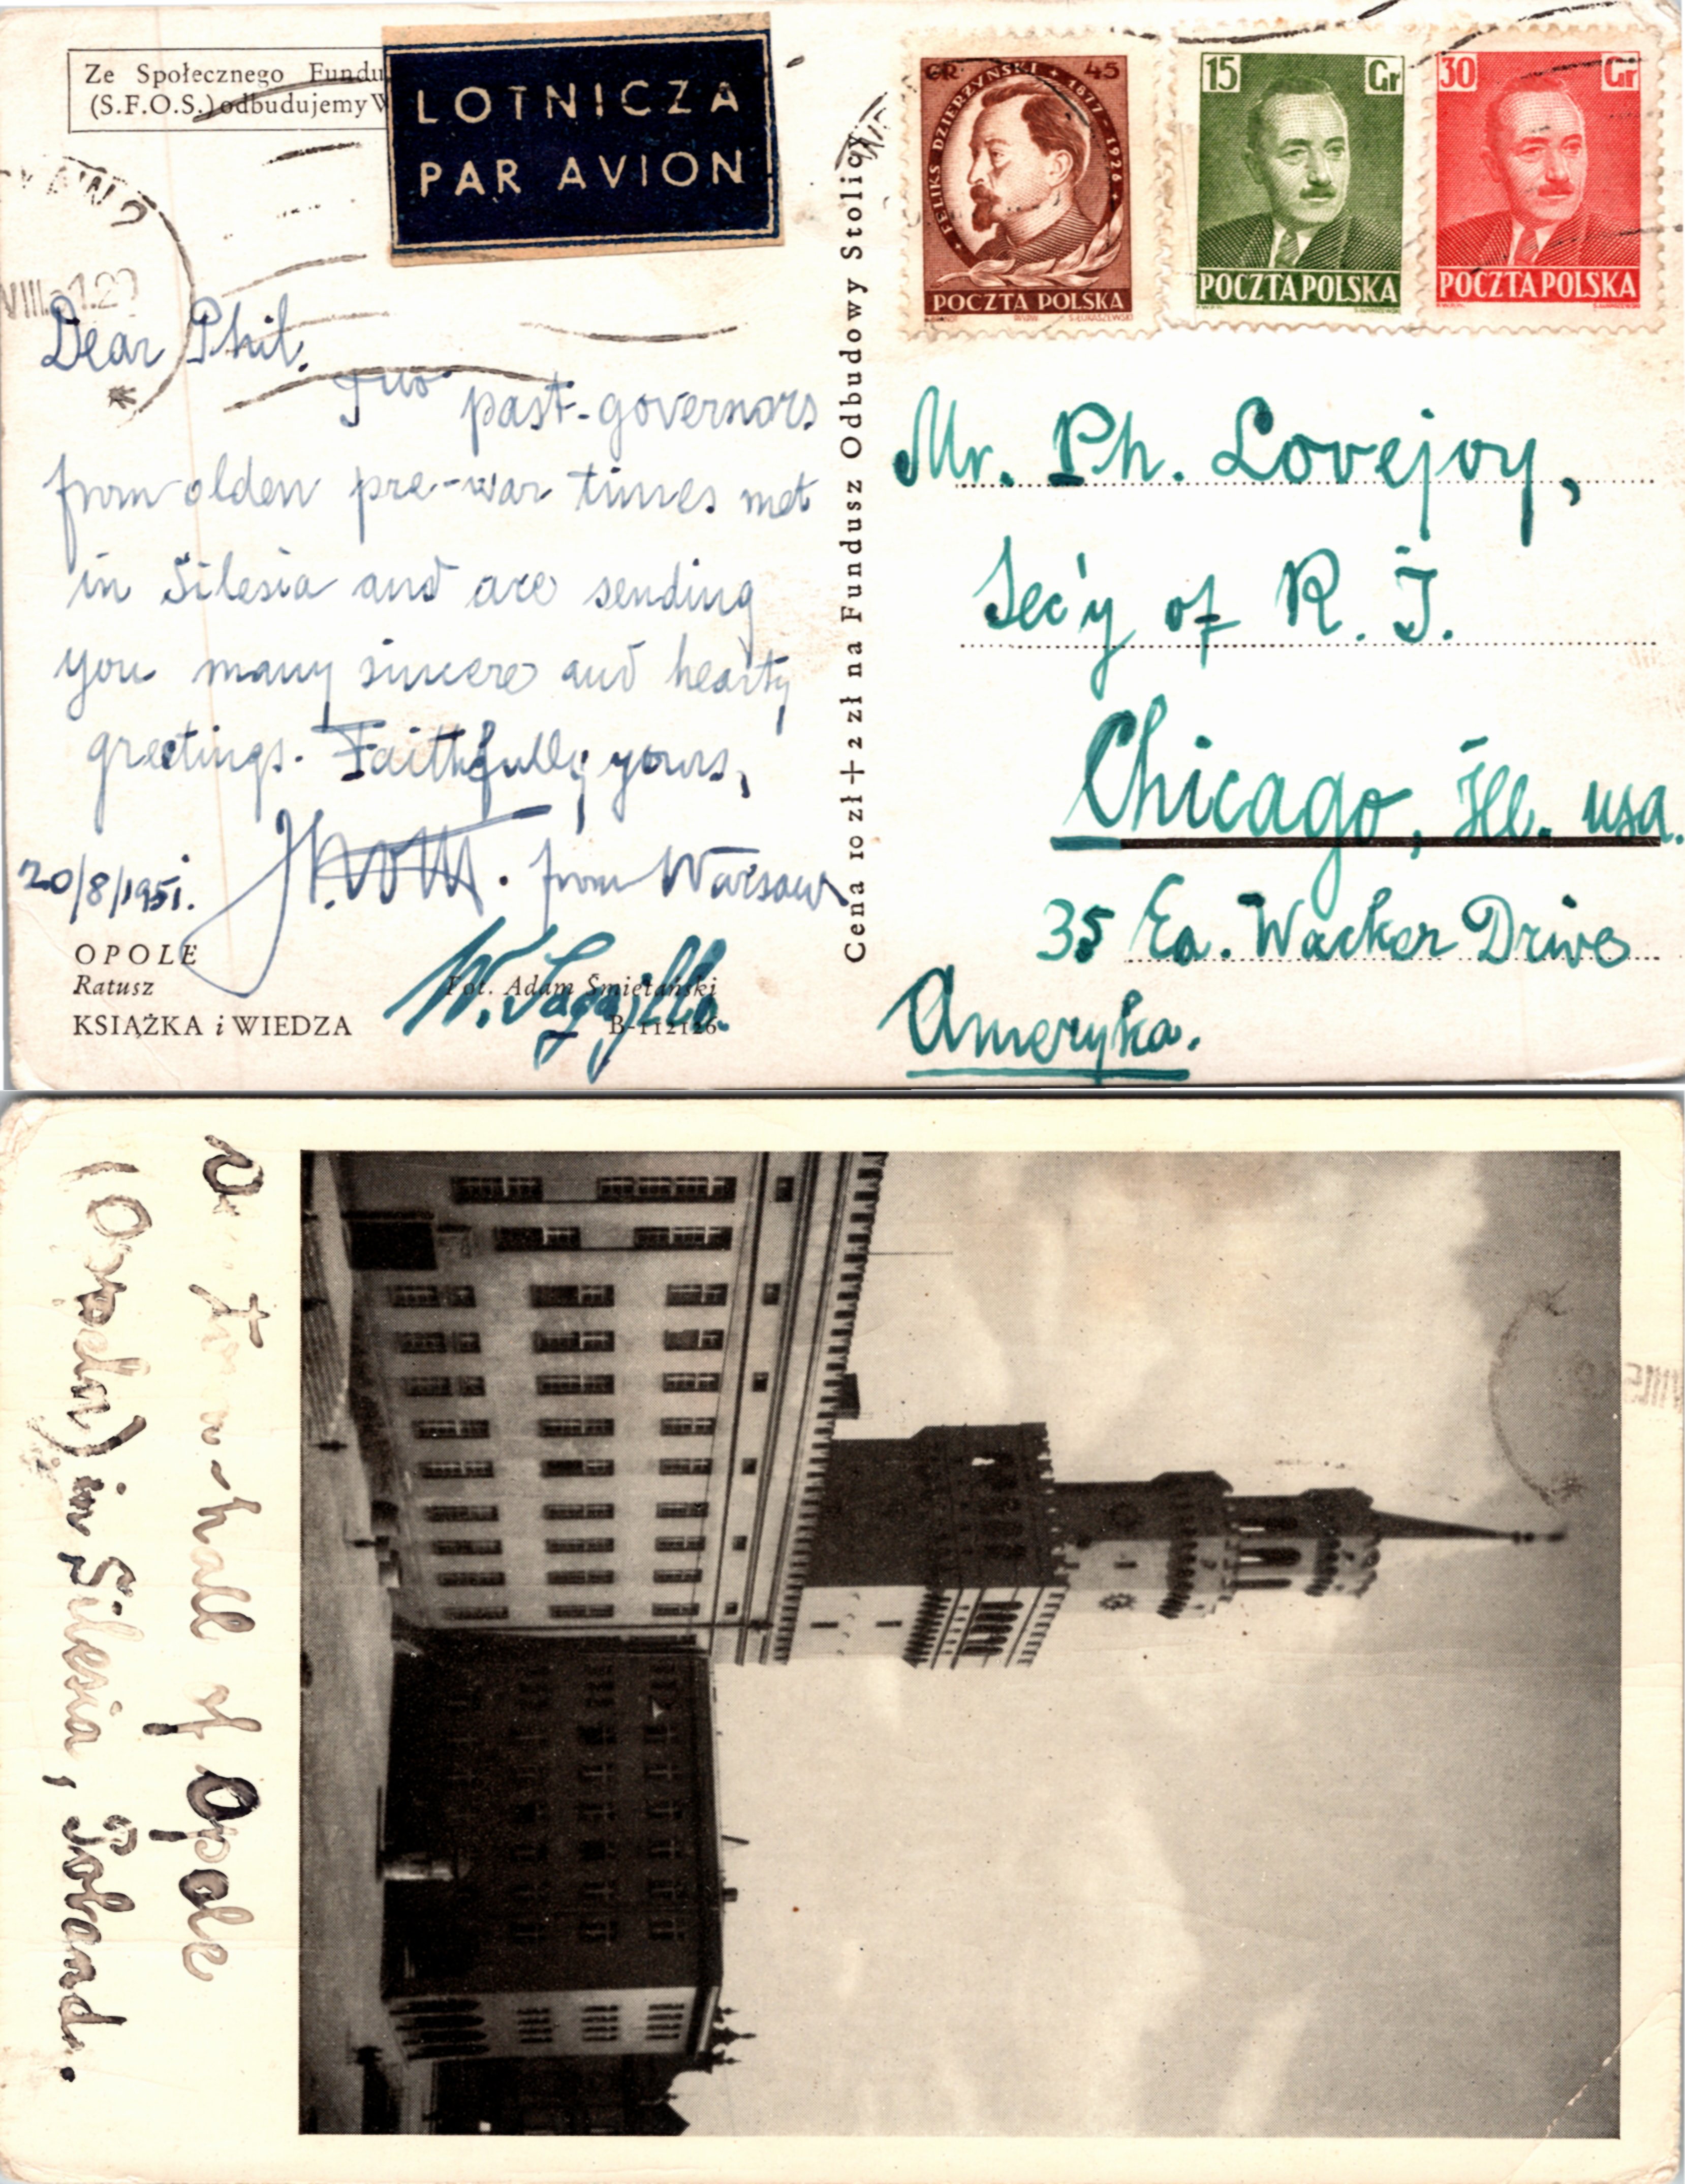 Ze Społecznego Fundu
(S.F.O.S.) odbudujemy W
LOTNICZA
PAR AVION
GR 45
FELIKS DZIERŻYŃSKI 1877-1926
POCZTA POLSKA
15 Gr
POCZTA POLSKA
30 Gr
POCZTA POLSKA
Dear Phil.
Two past-governors
from olden pre-war times met
in Silesia and are sending
you many sincere and hearty
greetings. Faithfully yours,
from Warsaw
20/8/1951.
OPOLE
Ratusz
Fot. Adam Śmietański
KSIĄŻKA i WIEDZA
B-112126
Cena 10 zł + 2 zł na Fundusz Odbudowy Stolicy
Mr. Ph. Lovejoy,
Sec'y of R. I.
Chicago, Ill. usa.
35 Ea. Wacker Drive
Ameryka.
town-hall of Opole
(Oppeln) in Silesia, Poland.